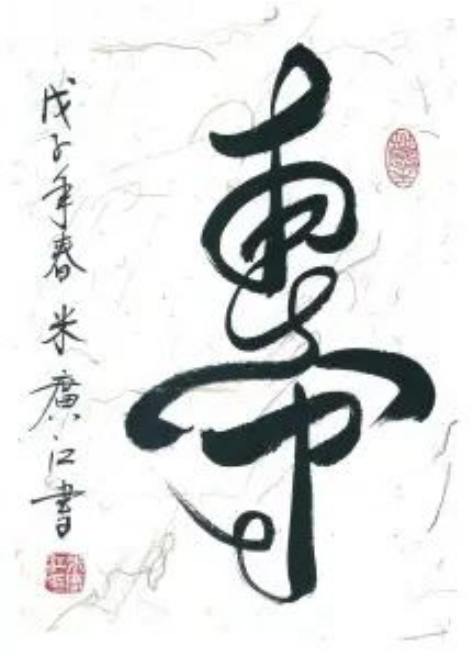 壽
戊子年春 米廣江書